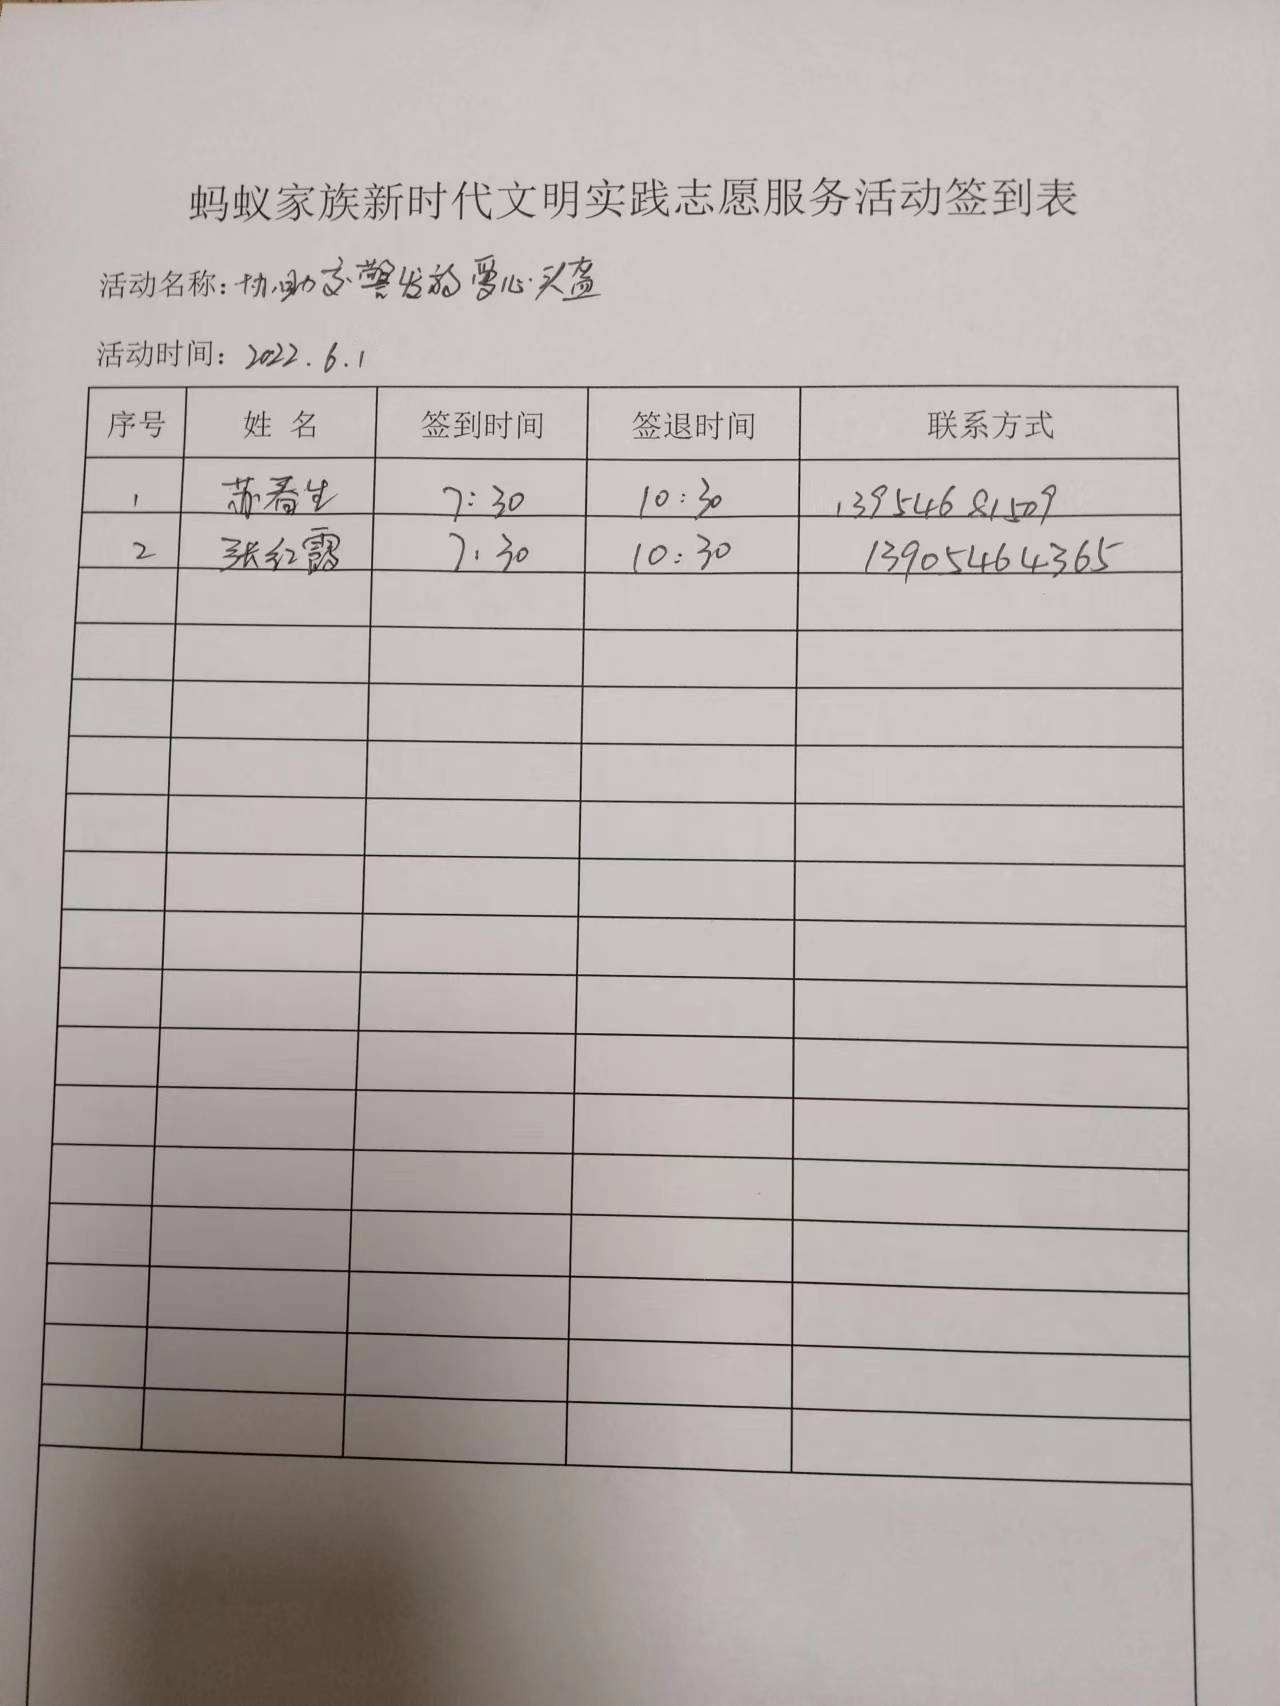 蚂蚁家族新时代文明实践志愿服务活动签到表
活动名称:协助交警发放爱心头盔
活动时间:2022.6.1
序号 姓 名 签到时间 签退时间 联系方式
1 苏春生 7:30 10:30 13954681509
2 张红霞 7:30 10:30 13905464365